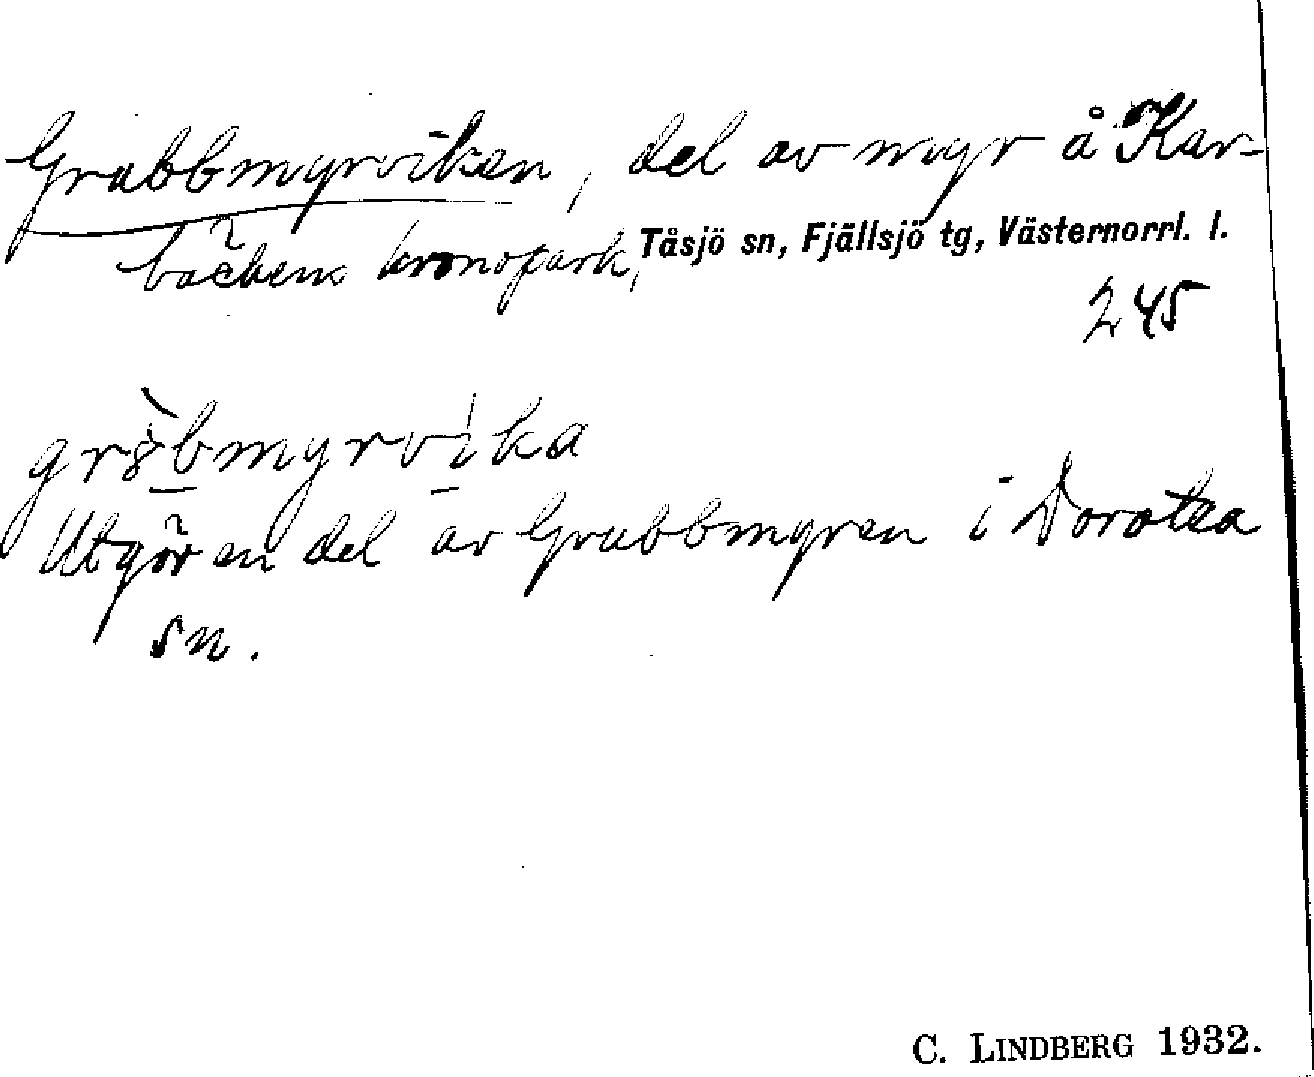 Grubbmyrviken, del av myr å Kar-
bäckens kronopark, Tåsjö sn, Fjällsjö tg, Västernorrl. l.
245
gr8̀bmyrvika
Utgör en del av Grubbmyren i Dorotea
sn.
C. LINDBERG 1932.